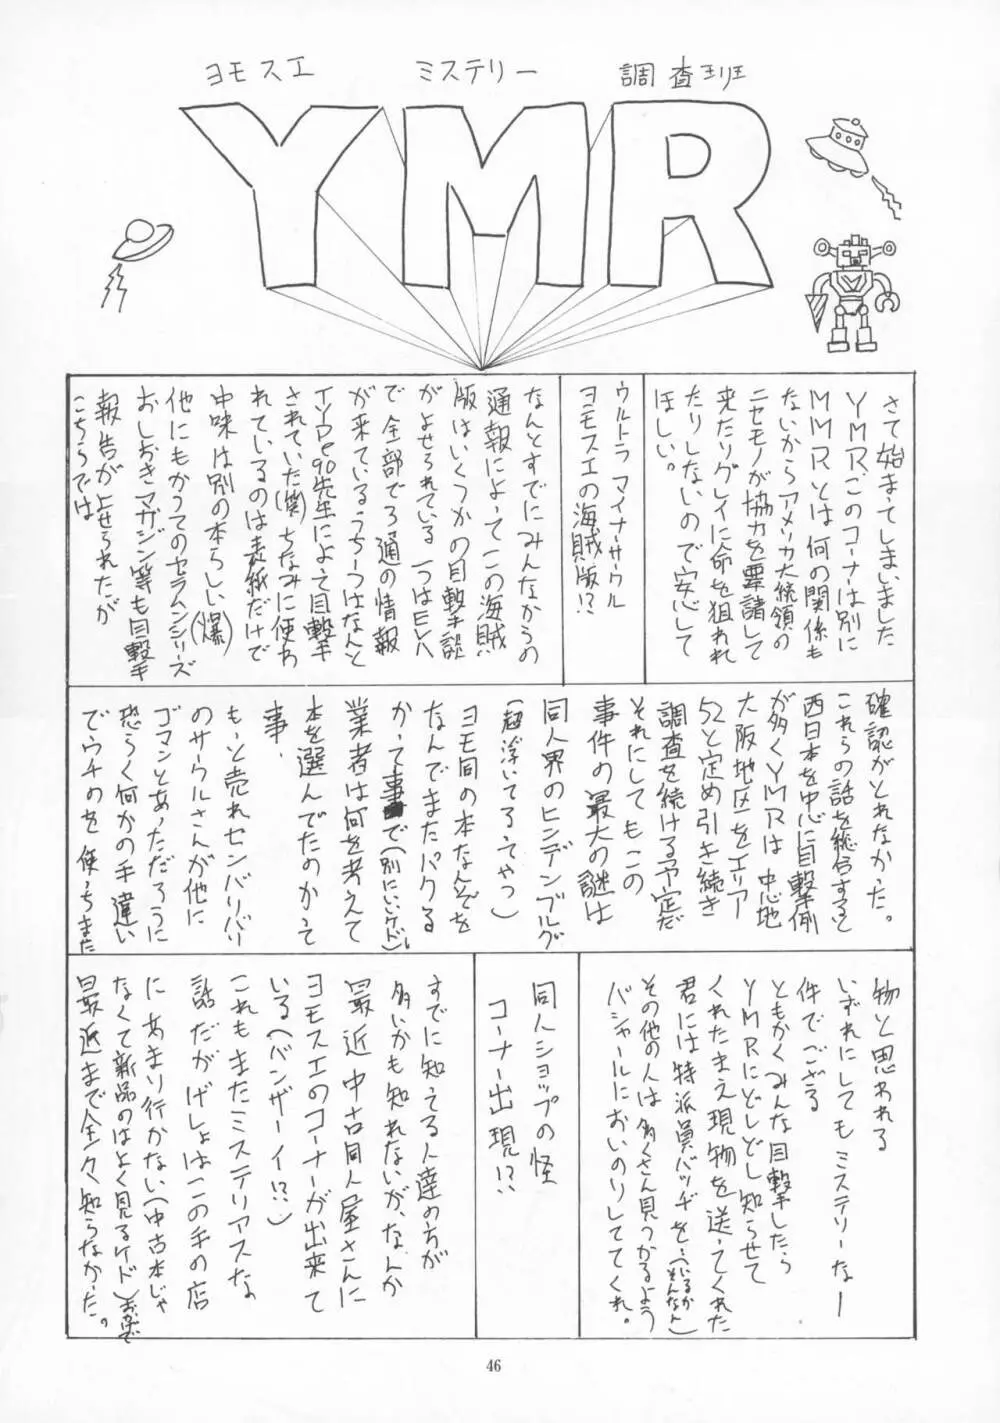 ヨモスエ ミステリー 調査班
YMR
さて始まってしまいました
YMR、このコーナーは別に
MMRとは何の関係も
ないからアメリカ大統領の
ニセモノが協力を要請して
来たりグレイに命を狙れれ
たりしないので安心して
ほしい。
ウルトラマイナーサークル
ヨモスエの海賊版!?
なんとすでにみんなからの
通報によってこの海賊
版はいくつかの目撃談
がよせられている 一つはEVA
で全部で3通の情報
が来ているうち一つはなんと
TYPe90先生によって目撃
されていた(笑)ちなみに使わ
れているのは表紙だけで
中味は別の本らしい(爆)
他にもかつてのセラムンシリーズ
おしおきマガジン等も目撃
報告がよせられたが
こちらでは
確認がとれなかった。
これらの話を総合すると
西日本を中心に目撃例
が多くYMRは中心地
大阪地区をエリア
52と定め引き続き
調査を続ける予定だ
それにしてもこの
事件の最大の謎は
同人界のヒンデンブルグ
(超浮いてるってやつ)
ヨモ同の本なんぞを
なんでまたパクる
かって事で(別にいいケド)、
業者は何を考えて
本を選んでたのかって
事、
もっと売れセンバリバリ
のサークルさんが他に
ゴマンとあっただろうに
恐らく何かの手違い
でウチのを使っちまた
物と思われる
いずれにしてもミステリーな
件でござる
ともかくみんな目撃したら
YMRにどしどし知らせて
くれたまえ現物を送ってくれた
君には特派員バッヂを…(いるかそんなん)
その他の人は多くさん見つかるよう
バシャールにおいのりしててくれ。
同人ショップの怪
コーナー出現!?
すでに知ってる人達の方が
多いかも知れないが、なんか
最近中古同人屋さんに
ヨモスエのコーナーが出来て
いる(バンザーイ!?)
これもまたミステリアスな
話だがげしょはこの手の店
にあまり行かない(中古本じゃ
なくて新品のはよく見るケド)おかげで
最近まで全々知らなかった。
46